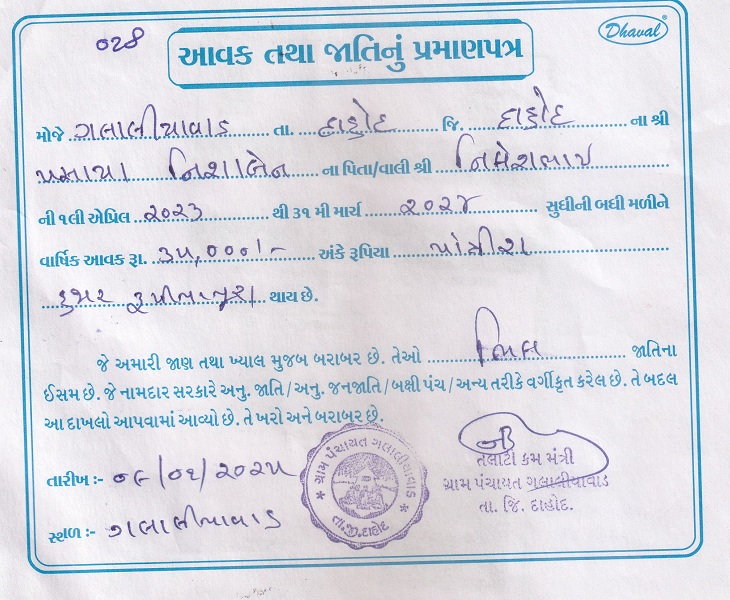 ૦૨૪
Dhaval
આવક તથા જાતિનું પ્રમાણપત્ર
મોજે ગલાલીયાવાડ તા. દાહોદ જિ. દાહોદ ના શ્રી
નિશાબેન ના પિતા/વાલી શ્રી
ની ૧લી એપ્રિલ ૨૦૨૩ થી ૩૧ મી માર્ચ ૨૦૨૪ સુધીની બધી મળીને
વાર્ષિક આવક રૂા. ૩૫,૦૦૦/- અંકે રૂપિયા પાંત્રીશ
હજાર રૂપીયા પુરા થાય છે.
જે અમારી જાણ તથા ખ્યાલ મુજબ બરાબર છે. તેઓ ભિલ જાતિના
ઈસમ છે. જે નામદાર સરકારે અનુ. જાતિ / અનુ. જનજાતિ / બક્ષી પંચ / અન્ય તરીકે વર્ગીકૃત કરેલ છે. તે બદલ
આ દાખલો આપવામાં આવ્યો છે. તે ખરો અને બરાબર છે.
તારીખ :- ૦૯/૦૧/૨૦૨૫
સ્થળ :- ગલાલીયાવાડ
ગ્રામ પંચાયત ગલાલીયાવાડ
તા.જી.દાહોદ
તલાટી કમ મંત્રી
ગ્રામ પંચાયત ગલાલીયાવાડ
તા. જિ. દાહોદ.